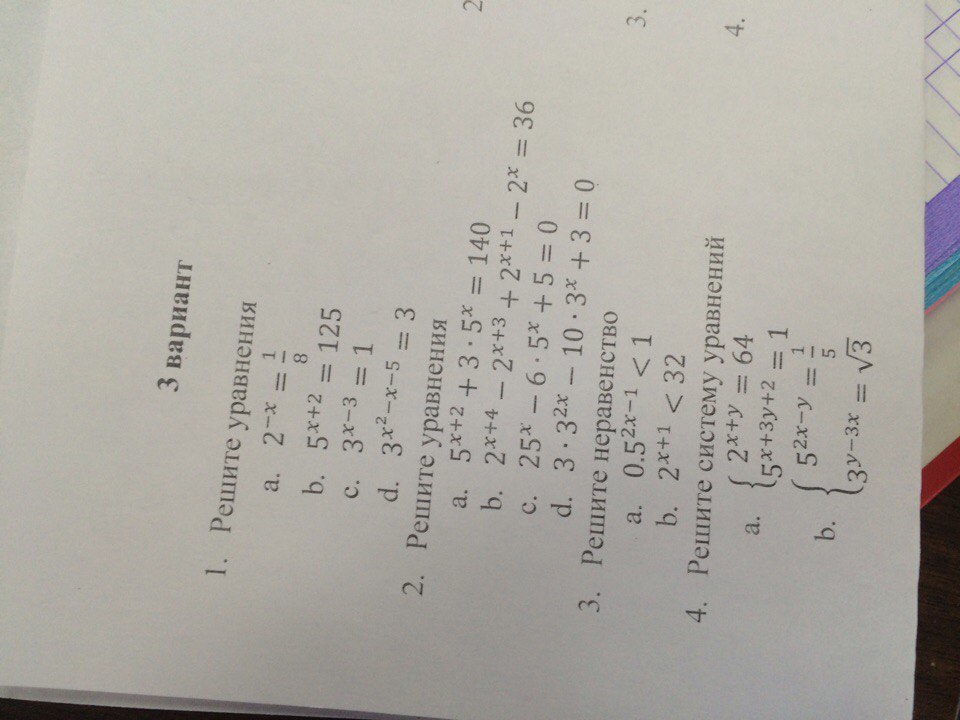 3 вариант
1. Решите уравнения
a. 2^{-x} = \frac{1}{8}
b. 5^{x+2} = 125
c. 3^{x-3} = 1
d. 3^{x^2-x-5} = 3
2. Решите уравнения
a. 5^{x+2} + 3 · 5^x = 140
b. 2^{x+4} − 2^{x+3} + 2^{x+1} − 2^x = 36
c. 25^x − 6 · 5^x + 5 = 0
d. 3 · 3^{2x} − 10 · 3^x + 3 = 0
3. Решите неравенство
a. 0.5^{2x−1} < 1
b. 2^{x+1} < 32
4. Решите систему уравнений
a. { 2^{x+y} = 64
5^{x+3y+2} = 1
b. { 5^{2x−y} = \frac{1}{5}
3^{y−3x} = √3
2
3.
4.